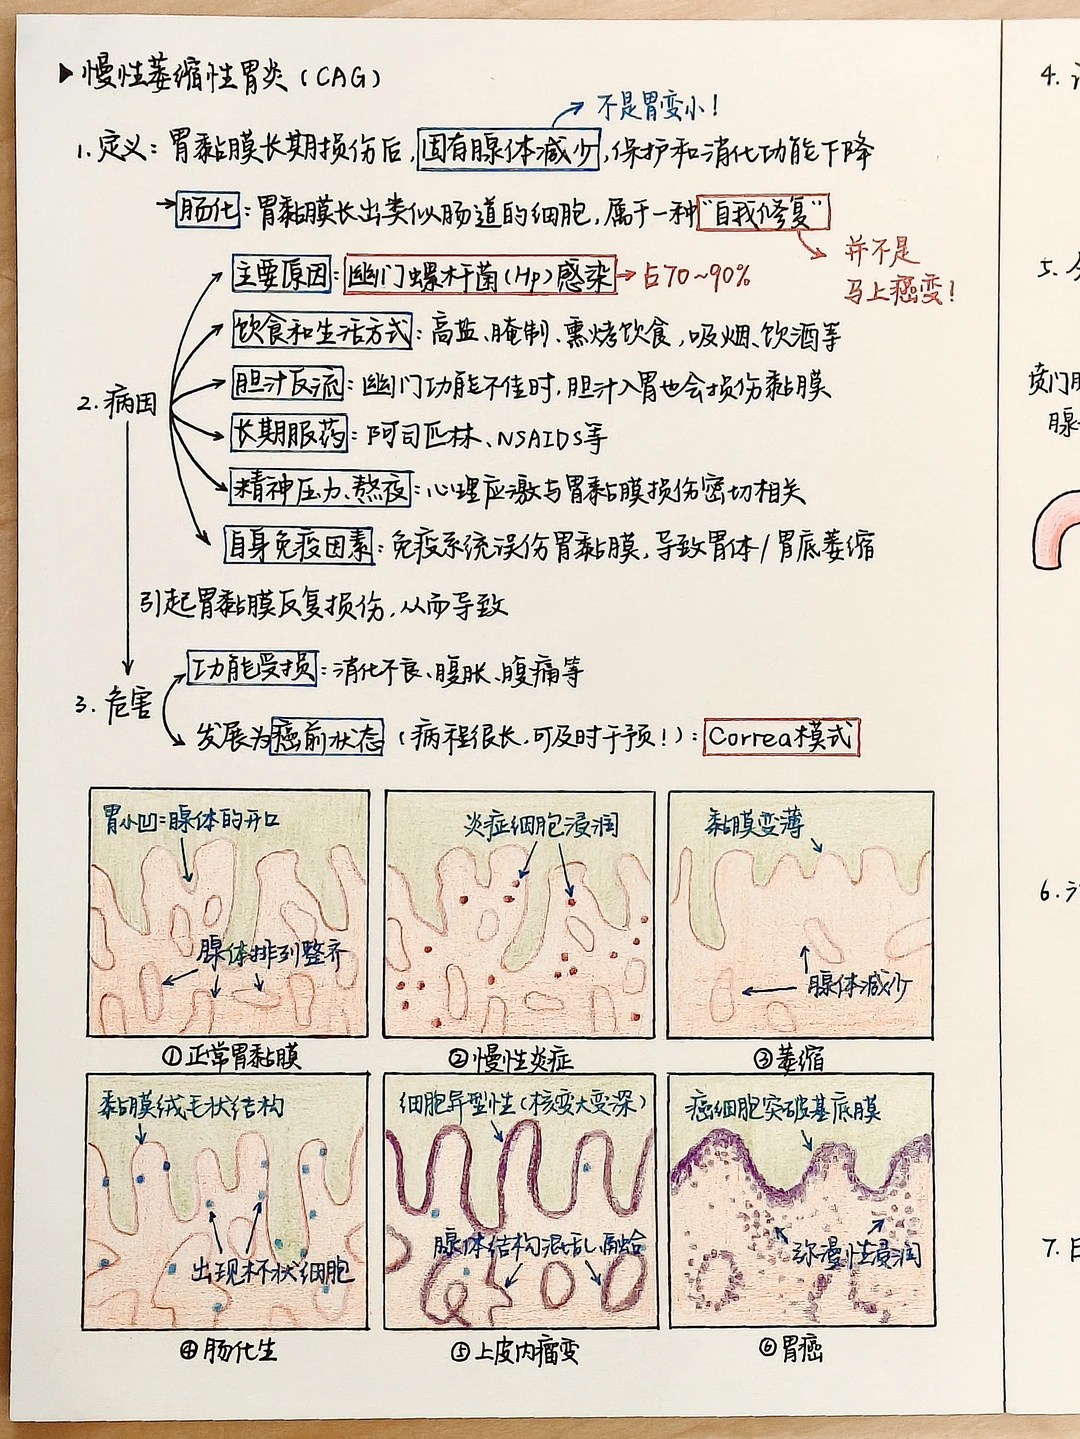 ▶慢性萎缩性胃炎(CAG)
不是胃变小!
1.定义:胃黏膜长期损伤后,固有腺体减少,保护和消化功能下降
→肠化:胃黏膜长出类似肠道的细胞,属于一种"自我修复"
并不是
马上癌变!
主要原因:幽门螺杆菌(Hp)感染→占70~90%
饮食和生活方式:高盐、腌制、熏烤饮食,吸烟、饮酒等
胆汁反流:幽门功能不佳时,胆汁入胃也会损伤黏膜
2.病因
长期服药:阿司匹林、NSAIDS等
精神压力、熬夜:心理应激与胃黏膜损伤密切相关
自身免疫因素:免疫系统误伤胃黏膜,导致胃体/胃底萎缩
引起胃黏膜反复损伤,从而导致
3.危害
功能受损:消化不良、腹胀、腹痛等
发展为癌前状态(病程很长,可及时干预!):Correa模式
胃小凹=腺体的开口
腺体排列整齐
①正常胃黏膜
炎症细胞浸润
②慢性炎症
黏膜变薄
腺体减少
③萎缩
黏膜绒毛状结构
出现杯状细胞
④肠化生
细胞异型性(核变大变深)
腺体结构混乱、融合
⑤上皮内瘤变
癌细胞突破基底膜
弥漫性浸润
⑥胃癌
4.
5.
贲门腺
腺
6.
7.